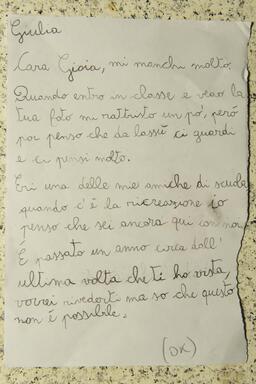 Giulia
Cara Gioia, mi manchi molto.
Quando entro in classe e vedo la
tua foto mi rattristo un pò, però
poi penso che da lassù ci guardi
e ci pensi molto.
Eri una delle mie amiche di scuola
quando c'è la ricreazione io
penso che sei ancora qui con noi.
È passato un anno circa dall'
ultima volta che ti ho vista,
vorrei rivederti ma so che questo
non è possibile.
(OK)